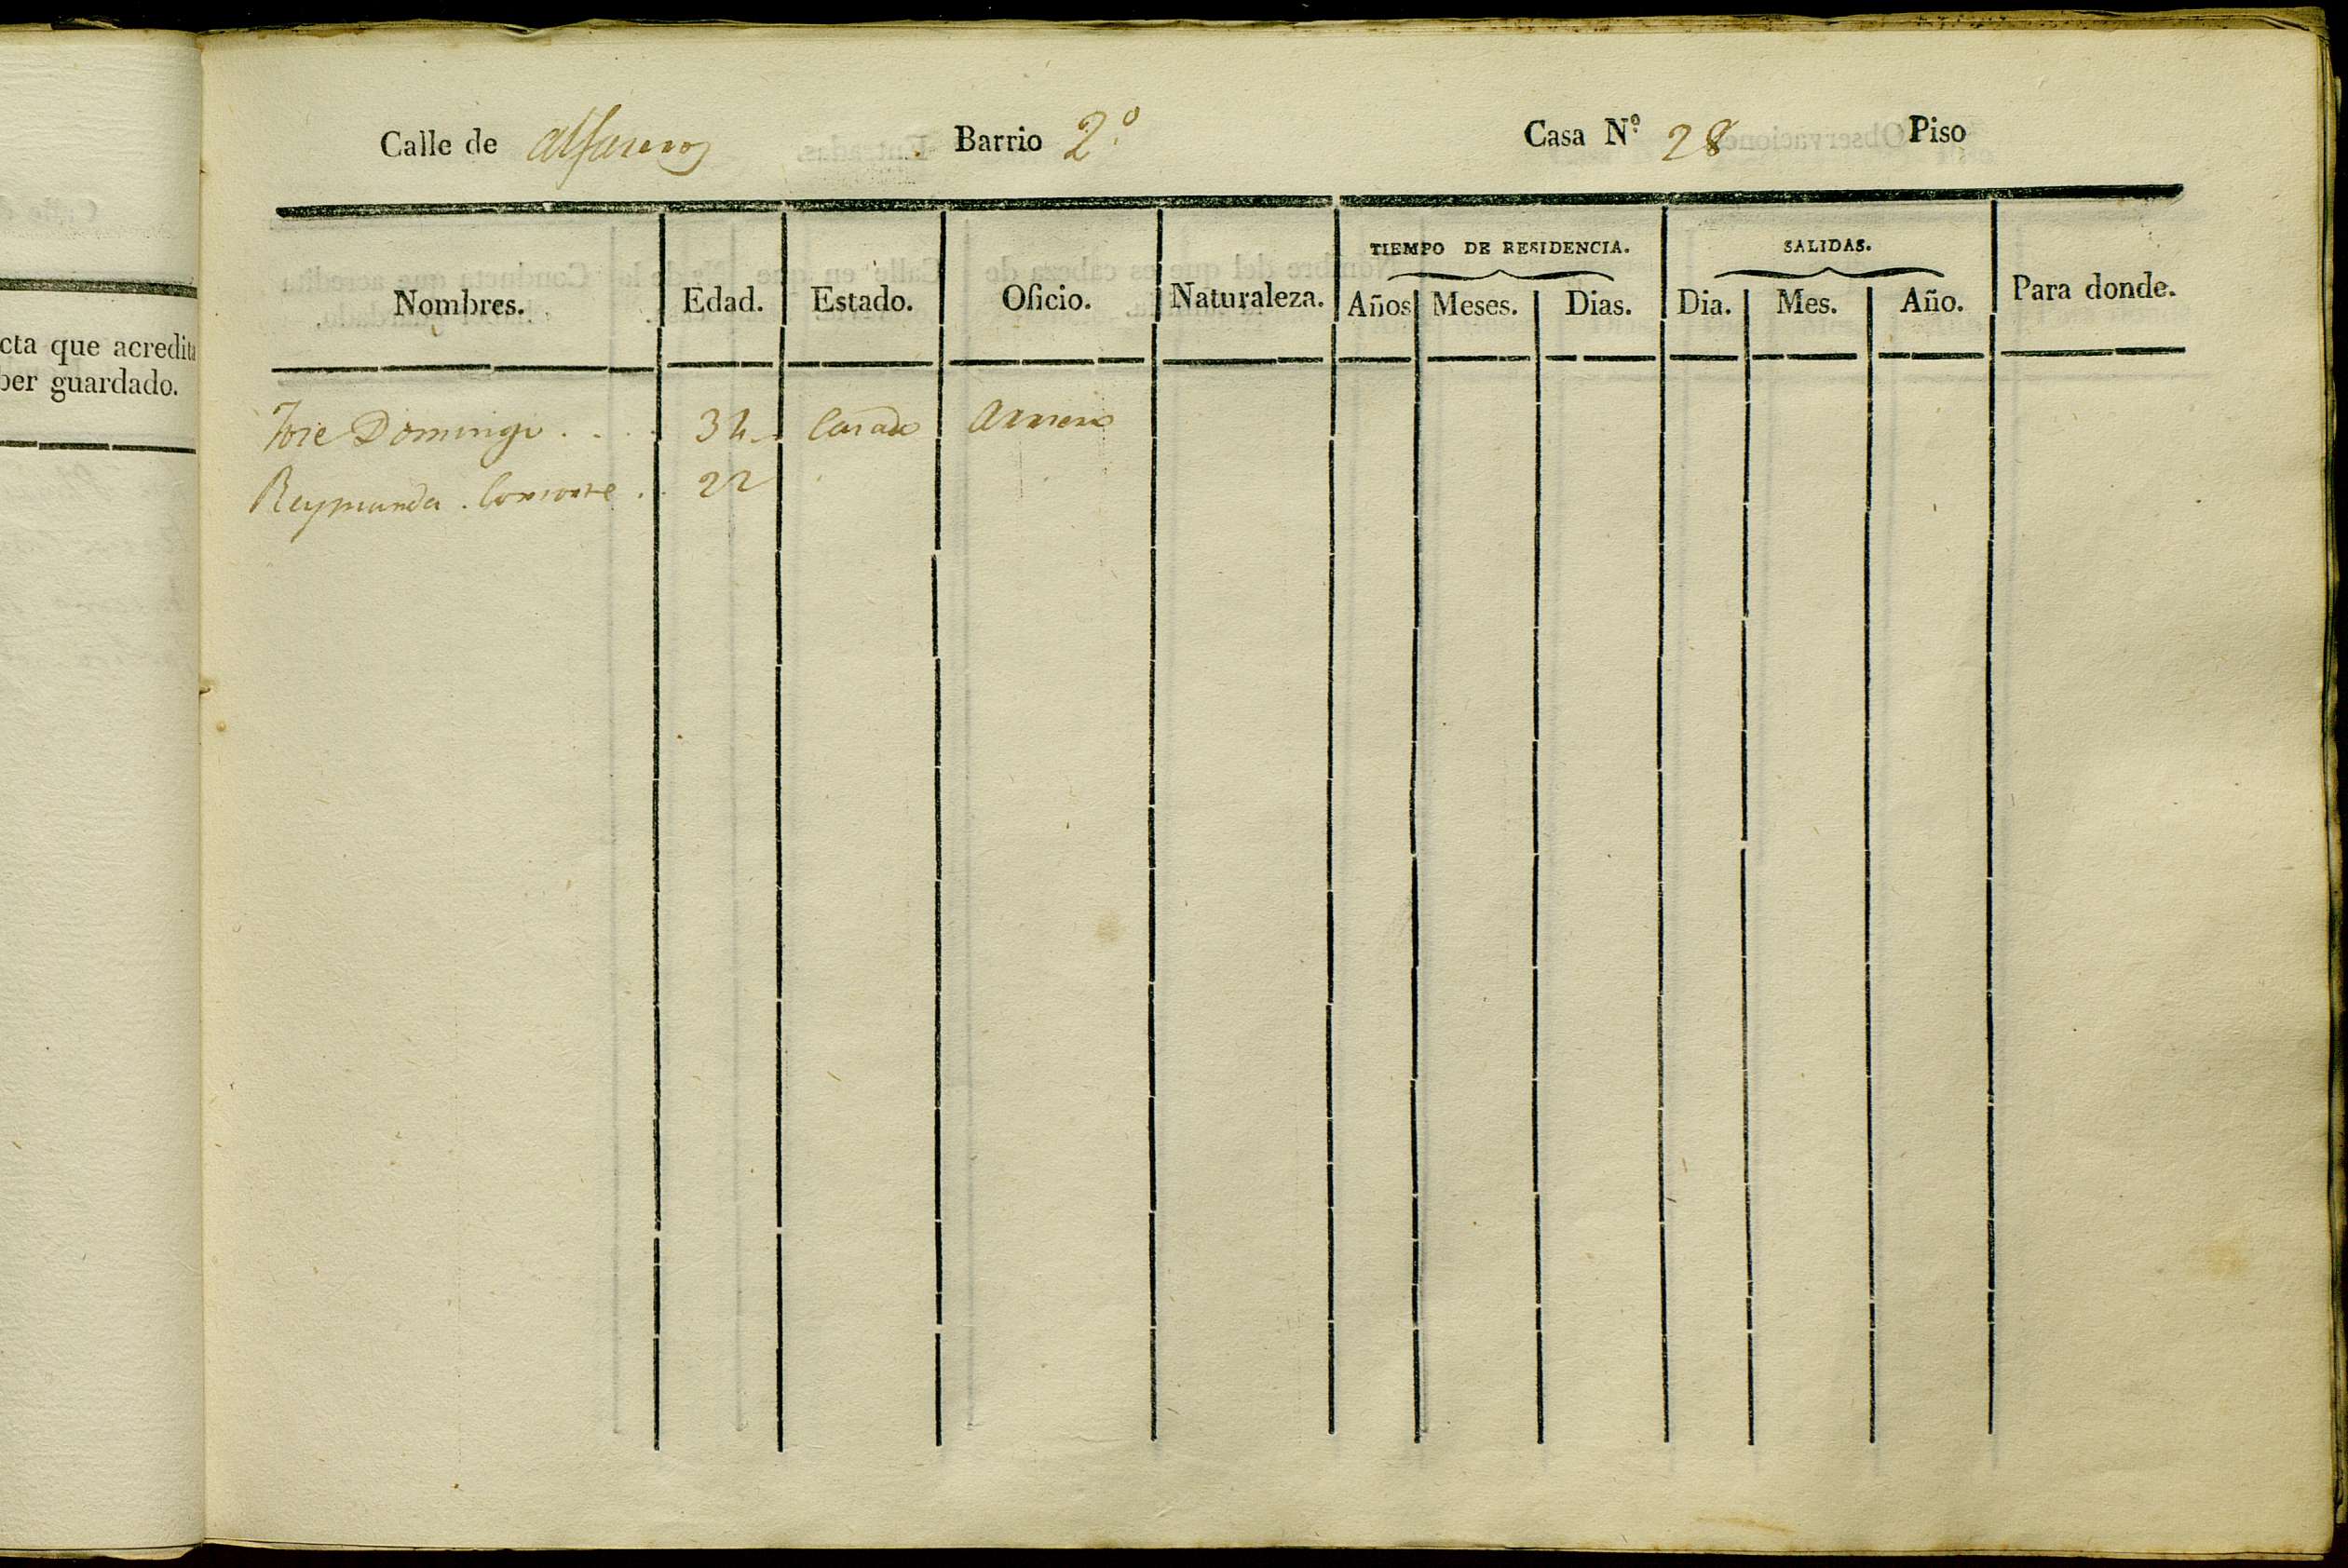 Calle de Alfareros Barrio 2.º Casa N.º 28 Piso
TIEMPO DE RESIDENCIA. SALIDAS.
Nombres. Edad. Estado. Oficio. Naturaleza. Años Meses. Dias. Dia. Mes. Año. Para donde.
cta que acredita
ber guardado.
Jose Domingo . . . . 34 Casado Arriero
Reymunda . . . 22